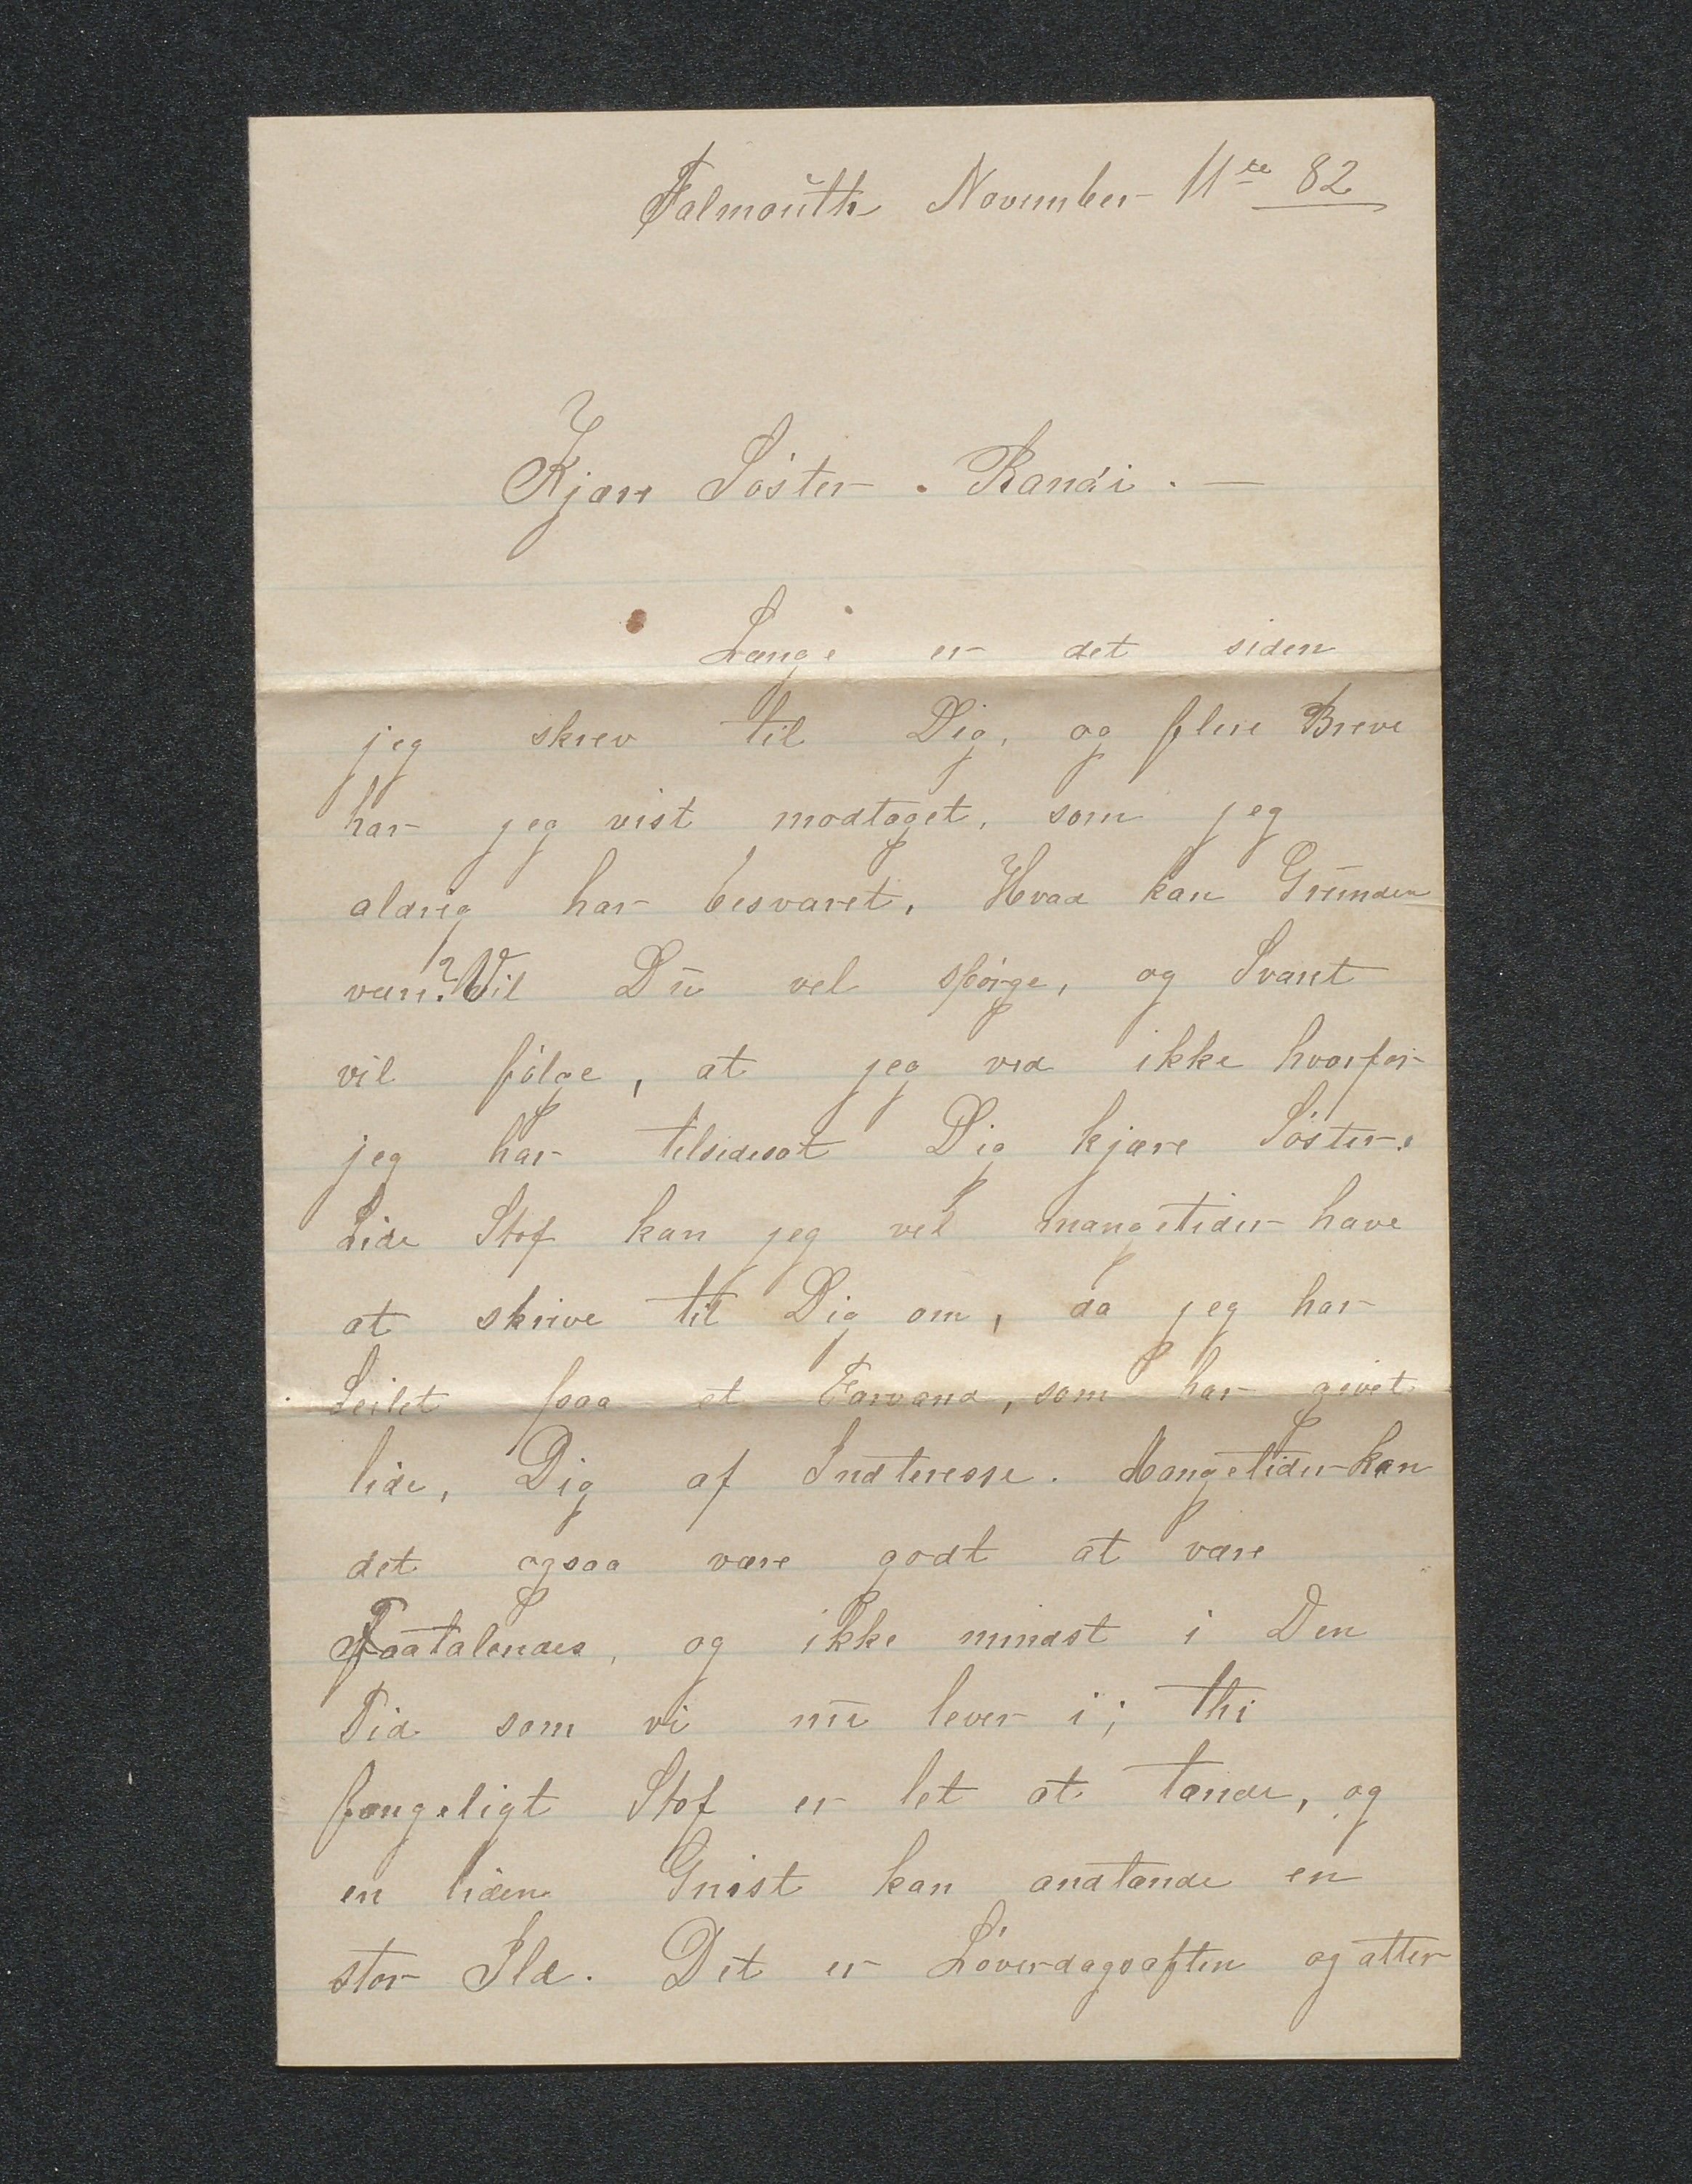 Falmouth November 11te 82
Kjære Söster. Randi. —
Længe er det siden
jeg skrev til Dig, og flere Breve
har jeg vist modtaget, som jeg
aldrig har besvaret, Hvad kan Grunden
være? Vil Du vel spörge, og Svaret
vil fölge, at jeg ved ikke hvorfor
jeg har tilsidesat Dig kjære Söster.
Lide Stof kan jeg vel mangetider have
at skrive til Dig om, da jeg har
Seilet paa et Farvand, som har givet
lide, Dig af Indteresse. Mangetider kan
det ogsaa være godt at være
Faatalendes, og ikke mindst i Den
Tid som vi nu lever i; thi
fængeligt Stof er let at tænde, og
en liden Gnist kan andtænde en
stor Ild. Det er Löverdagsaften og atter